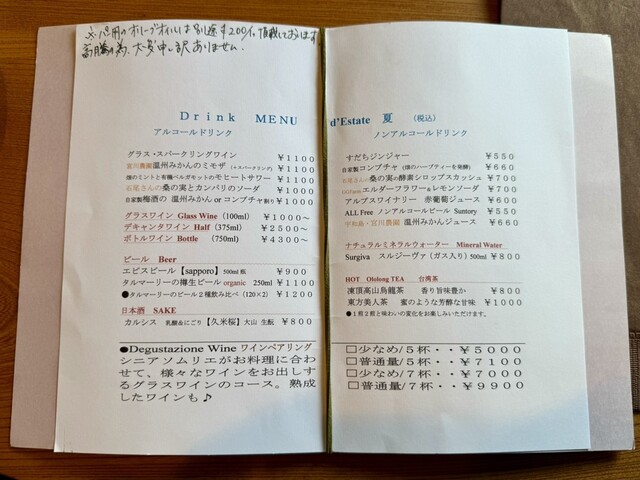 ※パン用のオリーブオイルは別途¥200頂戴しております
高騰の為、大変申し訳ありません.
Drink MENU
アルコールドリンク
グラス・スパークリングワイン ¥1100
宮川農園温州みかんのミモザ (+スパークリング) ¥1100
畑のミントと有機ベルガモットのモヒートサワー ¥1100
石尾さんの桑の実とカンパリのソーダ ¥1000
自家製梅酒の 温州みかん or コンブチャ割り ¥1000
グラスワイン Glass Wine (100ml) ¥1000～
デキャンタワイン Half (375ml) ¥2500～
ボトルワイン Bottle (750ml) ¥4300～
ビール Beer
エビスビール【sapporo】500ml 瓶 ¥900
タルマーリーの樽生ビール organic 250ml ¥1100
●タルマーリーのビール2種飲み比べ(120×2) ¥1200
日本酒 SAKE
カルシス 乳酸&にごり【久米桜】大山 生酛 ¥800
●Degustazione Wine ワインペアリング
シニアソムリエがお料理に合わ
せて、様々なワインをお出しす
るグラスワインのコース。熟成
したワインも♪
d'Estate 夏 (税込)
ノンアルコールドリンク
すだちジンジャー ¥550
自家製コンブチャ(畑のハーブティーを発酵) ¥660
石尾さんの桑の実の酵素シロップスカッシュ ¥700
エルダーフラワー&レモンソーダ ¥700
アルプスワイナリー 赤葡萄ジュース ¥600
ALL Free ノンアルコールビール Suntory ¥550
宇和島・宮川農園 温州みかんジュース ¥660
ナチュラルミネラルウォーター Mineral Water
Surgiva スルジーヴァ(ガス入り)500ml ¥800
HOT Ololong TEA 台湾茶
凍頂高山烏龍茶 香り旨味豊か ¥800
東方美人茶 蜜のような芳醇な甘味 ¥1000
●1煎2煎と味わいの変化をお楽しみいただけます。
□少なめ/5杯・・¥5000
□普通量/5杯・・¥7100
□少なめ/7杯・・¥7000
□普通量/7杯・・¥9900